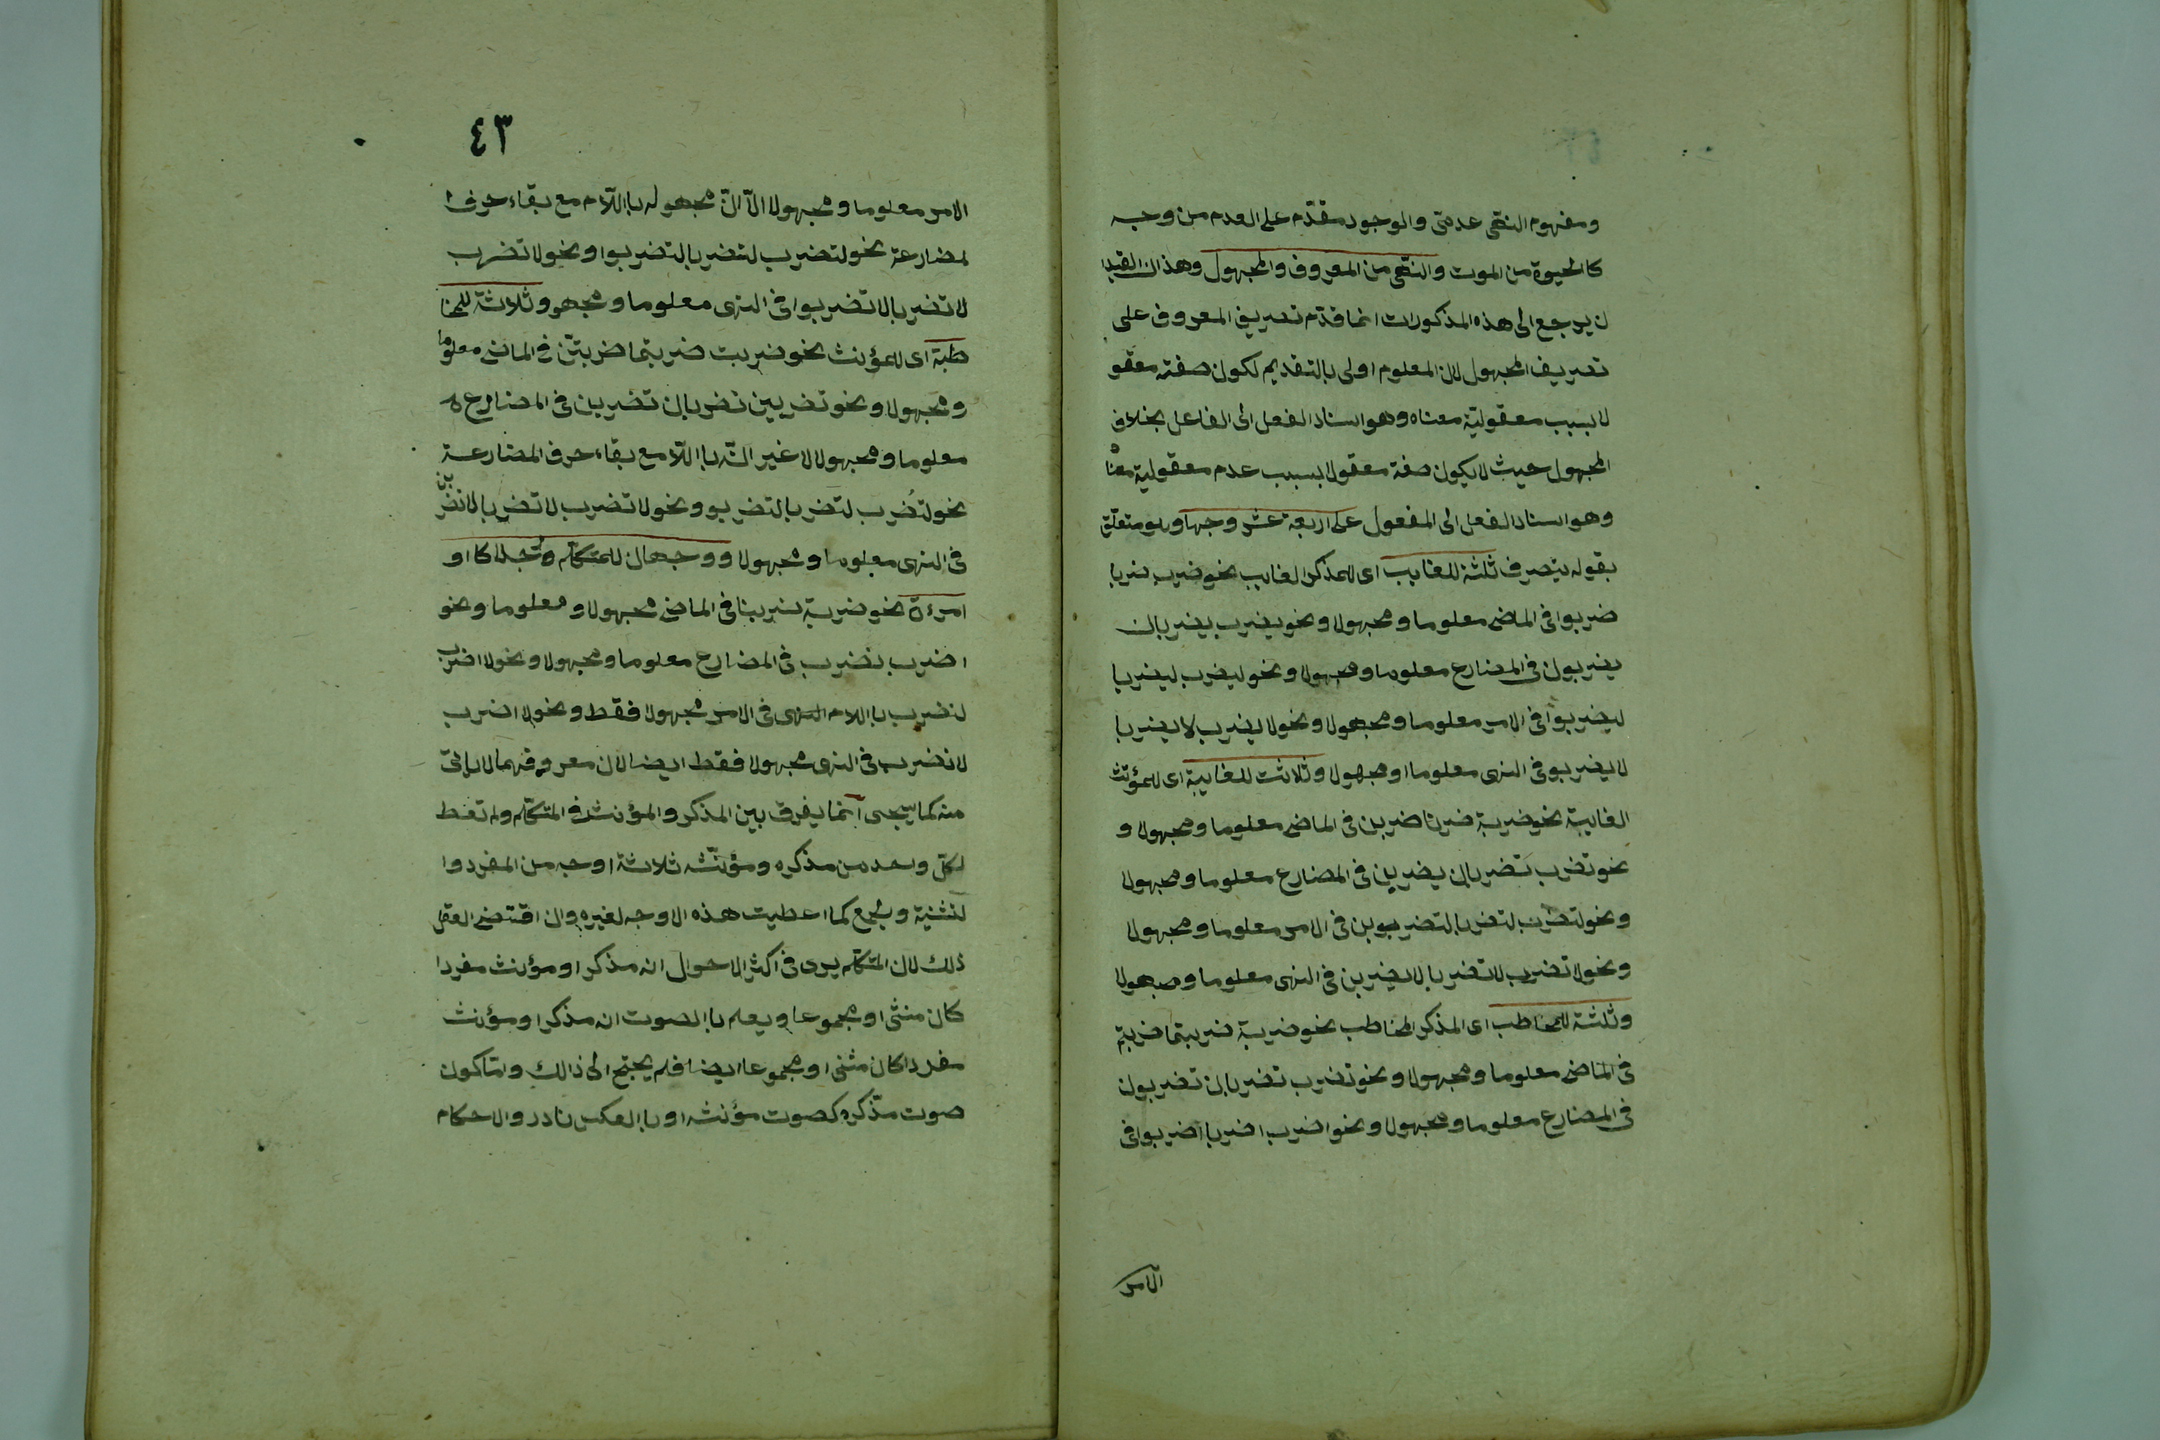 ومفهوم النفى عدمتى والوجود مقدّم على العدم من وجه
كالحيوة من الموت والنفى من المعروف والمجهول وهذان القيدا
ن يرجع الى هذه المذكورات انما قدّم تعريف المعروف على
تعريف المجهول لان المعلوم اولى بالتقديم لكون صفته معقو
لا بسبب معقوليّة معناه وهو اسناد الفعل الى الفاعل بخلاف
المجهول حيث لا يكون صفة معقولا بسبب عدم معقولية معناه
وهو اسناد الفعل الى المفعول على اربعة عشر وجها وهو متعلّق
بقوله يتصرف ثلثة للغايب اى للمذكر الغايب نحو ضرب ضربا
ضربوا فى الماضى معلوما ومجهولا ونحو يضرب يضربان
يضربون فى المضارع معلوما ومجهولا ونحو ليضرب ليضربا
ليضربوا فى الامر معلوما ومجهولا ونحو لا يضرب لا يضربا
لا يضربو فى النهى معلوما او مجهولا وثلاثت للغايبة اى للمؤنّث
الغايبة نحو ضربة ضربتا ضربن فى الماضى معلوما ومجهولا و
نحو تضرب تضربان يضربن فى المضارع معلوما ومجهولا
ونحو لتضرب لتضربا لتضربوبن فى الامر معلوما ومجهولا
ونحو لا تضرب لا تضربا لا يضربن فى النهى معلوما ومجهولا
وثلثة للمخاطب اى المذكر المخاطب نحو ضربة ضربتما ضربتم
فى الماضى معلوما ومجهولا ونحو تضرب تضربان تضربون
فى المضارع معلوما ومجهولا ونحو اضرب اضربا اضربوا فى
الامر
٤٣
الامر معلوما ومجهولا الا انّ مجهوله بااللام مع بقاء حرف ا
لمضارعة نحو لتضرب لتضربا لتضربوا ونحو لا تضرب
لا تضربا لا تضربوا فى النهى معلوما ومجهو وثلاثة للمخا
طبة اى للمؤنث نحو ضربت ضربتما ضربتنّ فى الماضى معلوما
ومجهولا ونحو تضربين تضربان تضربن فى المضارع
معلوما ومجهولا لا غير انّه بااللا مع بقاء حرف المضارعة
نحو لتُضرب لتضربا لتضربو ونحو لا تضرب لا تضربا لا تضربن
فى النهى معلوما ومجهولا ووجهان للمتكلّم رجلا كا او
امرءة نحو ضربة ضربنا فى الماضى مجهولا ومعلوما ونحو
اضرب نضرب فى المضارع معلوما ومجهولا ونحو لا اضرب
لنضرب بااللام النهى فى الامر مجهولا فقط ونحو لا اضرب
لا نضرب فى النهى مجهولا فقط ايضا لان معروفهما لا ياتى
منه كما يجىء انما يفرق بين المذكر والمؤنث فى المتكلّم ولم تعط
لكل واحد من مذكره ومؤنثه ثلاثة اوجه من المفرد وا
لتثنية والجمع كما اعطيت هذه الاوجه لغيره وان اقتضى العقل
ذلك لان المتكلّم يرى فى اكثر الاحوال انه مذكر او مؤنث مفردا
كان مثنى او مجموعا ويعلم باالصوت انه مذكرا ومؤنث
مفردا كان مثنى او مجموعا ايضا فلم يحتج الى ذالك وامّا كون
صوت مذّكره كصوت مؤنثه او باالعكس نادر والاحكام